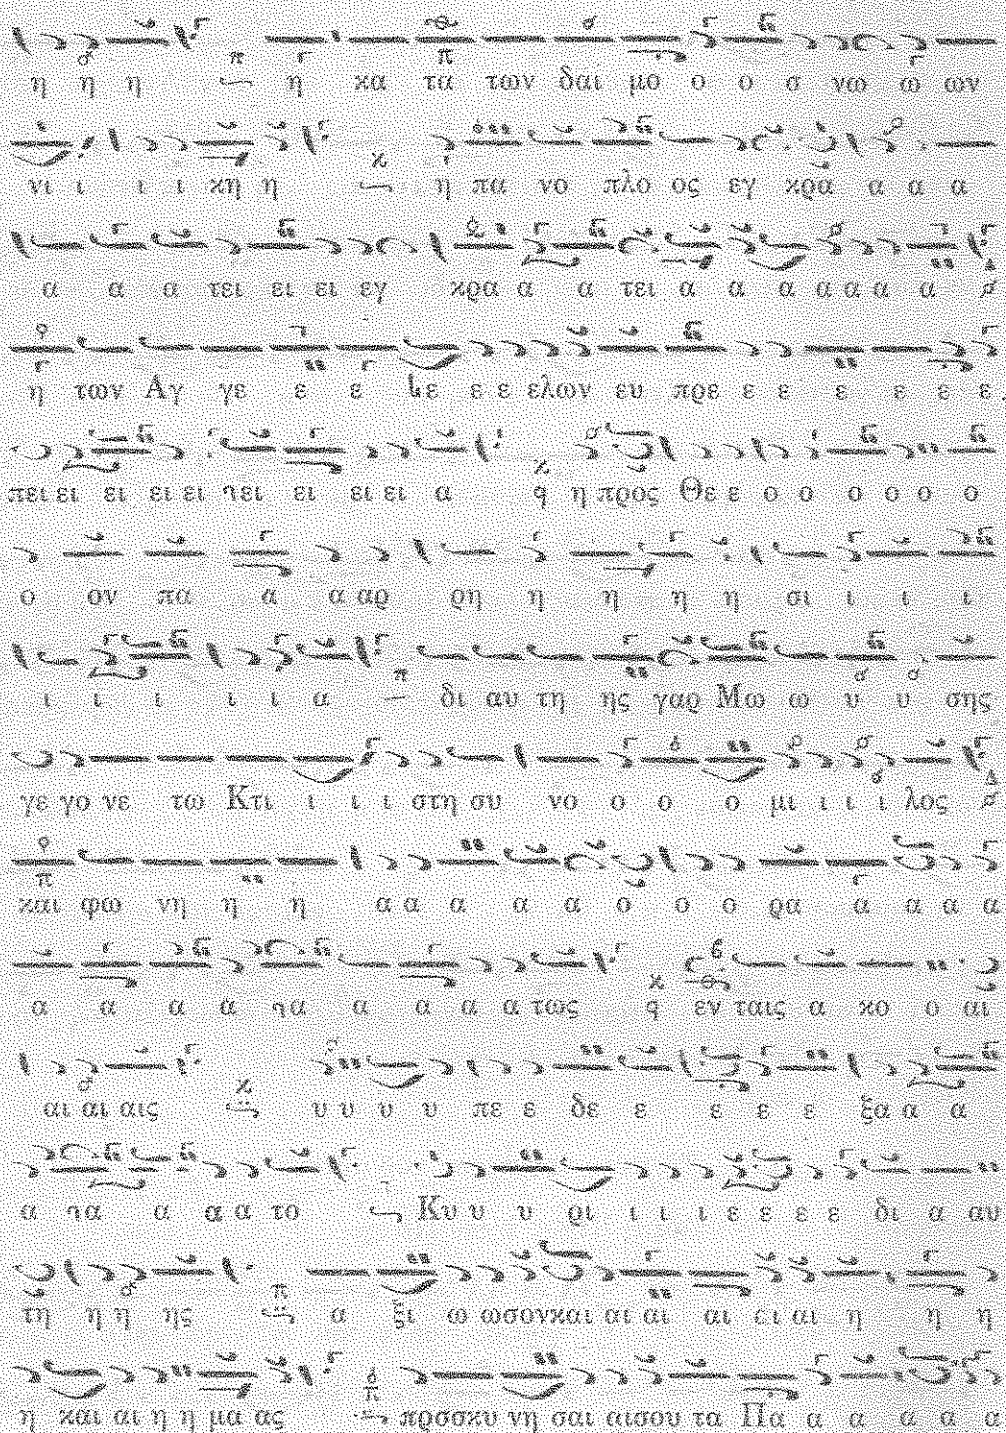 η η η η κα τα των δαι μο ο ο σ νω ω ων
νι ι ι ι κη η η πα νο πλο ος εγ κρα α α α
α α α τει ει ει εγ κρα α α τει α α α α α α α
η των Αγ γε ε ε γε ε ε ελων ευ πρε ε ε ε ε ε ε
πει ει ει ει ει νει ει ει ει α η προς Θε ε ο ο ο ο ο ο
ο ον πα α α αρ ρη η η η η σι ι ι ι
ι ι ι ι ι α δι αυ τη ης γαρ Μω ω υ υ σης
γε γο νε τω Κτι ι ι ι στη συ νο ο ο ο μι ι ι ι λος
και φω νη η η α α α α α ο ο ο ρα α α α α
α α α α να α α α α τως εν ταις α κο ο αι
αι αι αις υ υ υ υ πε ε δε ε ε ε ε ξα α α
α να α α α το Κυ υ υ ρι ι ι ι ε ε ε ε δι α αυ
τη η η ης α ξι ω ωσον και αι αι αι αι η η η
η και αι η η μα ας προσκυ νη σαι αι σου τα Πα α α α α α